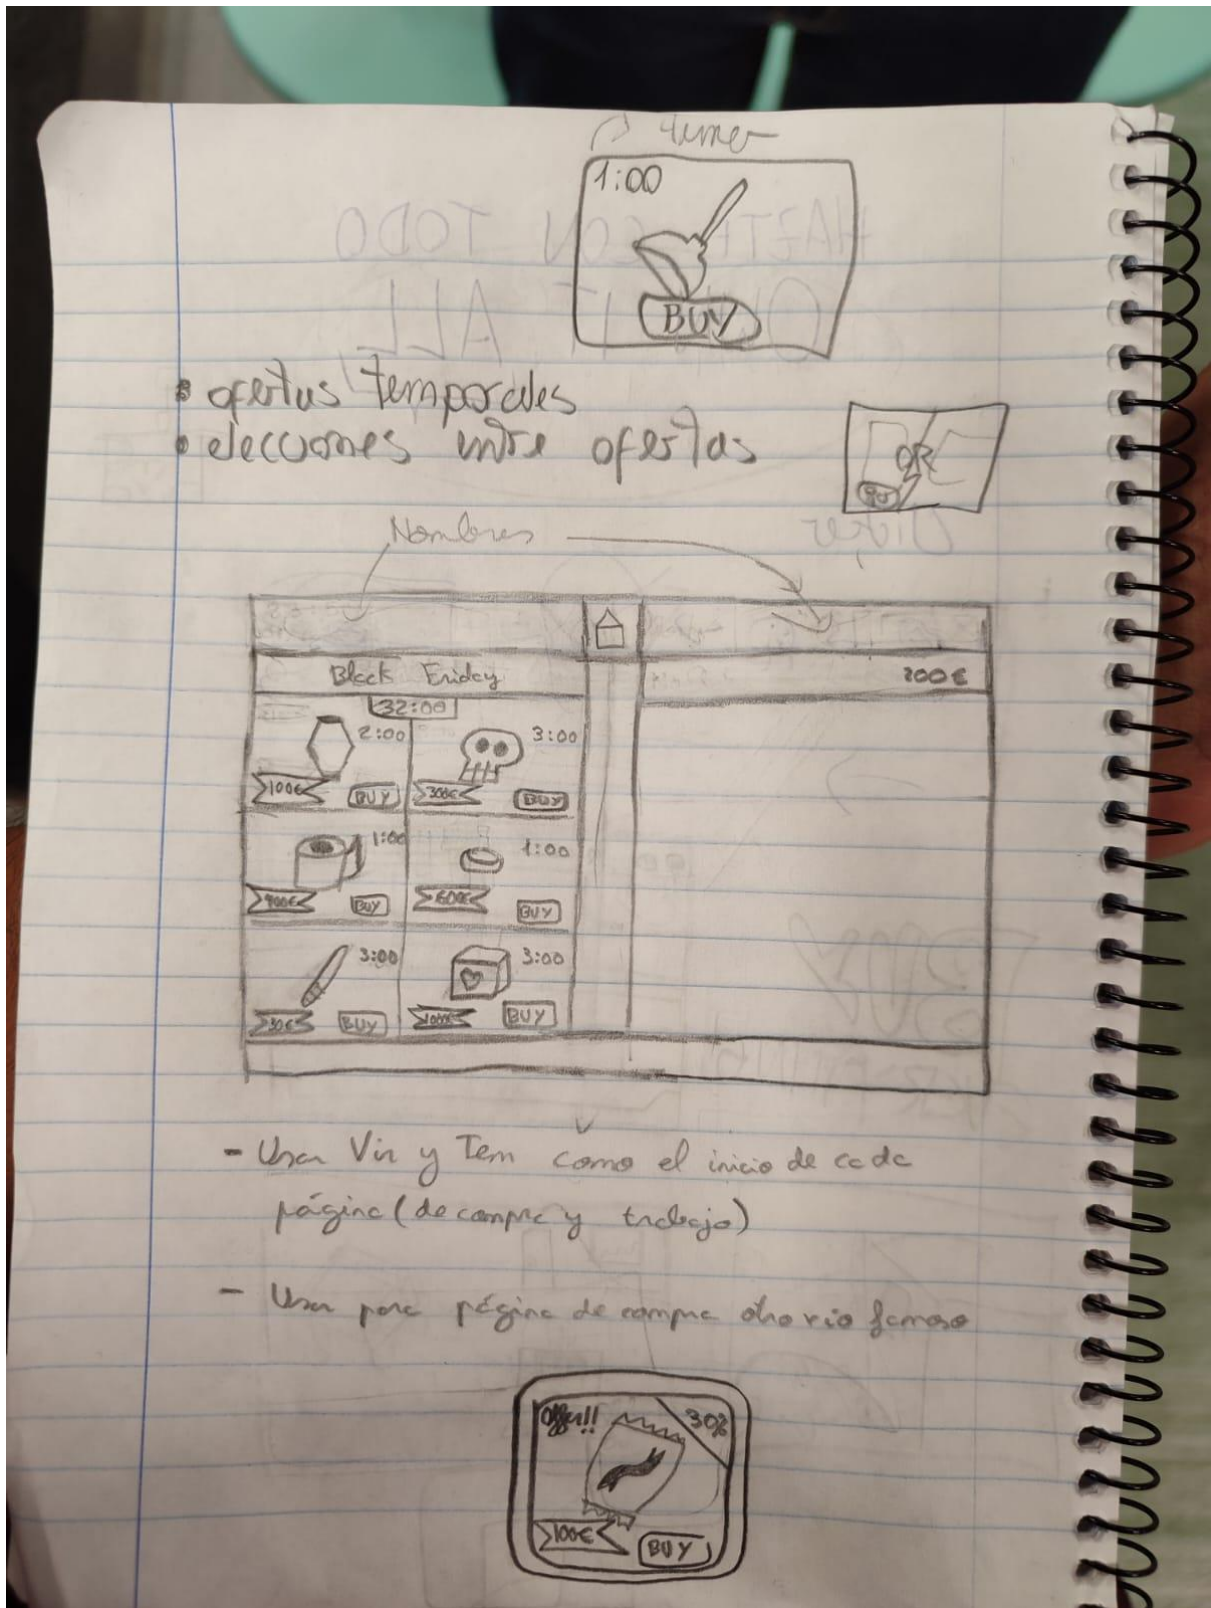 timer
1:00
BUY
• ofertas temporales
• elecciones entre ofertas
OR
Nombres
Black Friday
200€
32:00
2:00
3:00
100€
BUY
300€
BUY
1:00
1:00
BUY
600€
BUY
3:00
3:00
30€
BUY
100€
BUY
- Usar Vin y Tem como el inicio de cada
página (de compra y trabajo)
- Usar para página de compra otro río famoso
Offer!!
30%
100€
BUY